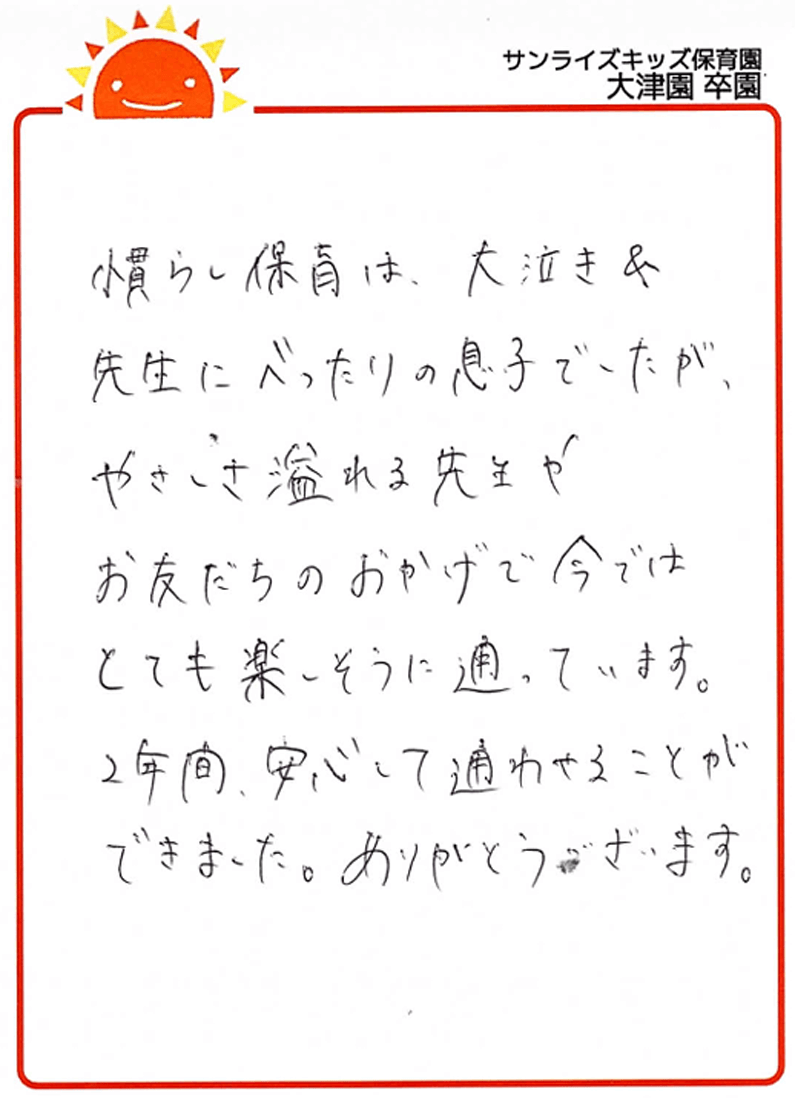 サンライズキッズ保育園
大津園 卒園
慣らし保育は、大泣き&
先生にべったりの息子でしたが、
やさしさ溢れる先生や
お友だちのおかげで今では
とても楽しそうに通っています。
2年間、安心して通わせることが
できました。ありがとうございます。